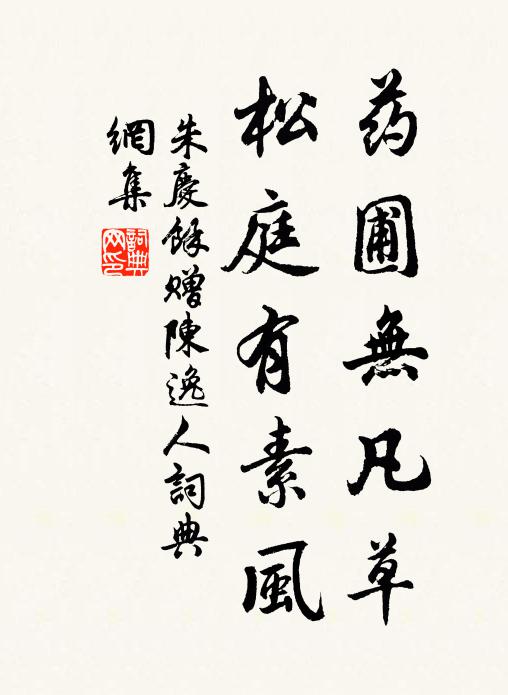 药圃無凡草
松庭有素風
朱慶餘贈陳逸人詞典
網集
詞典网印